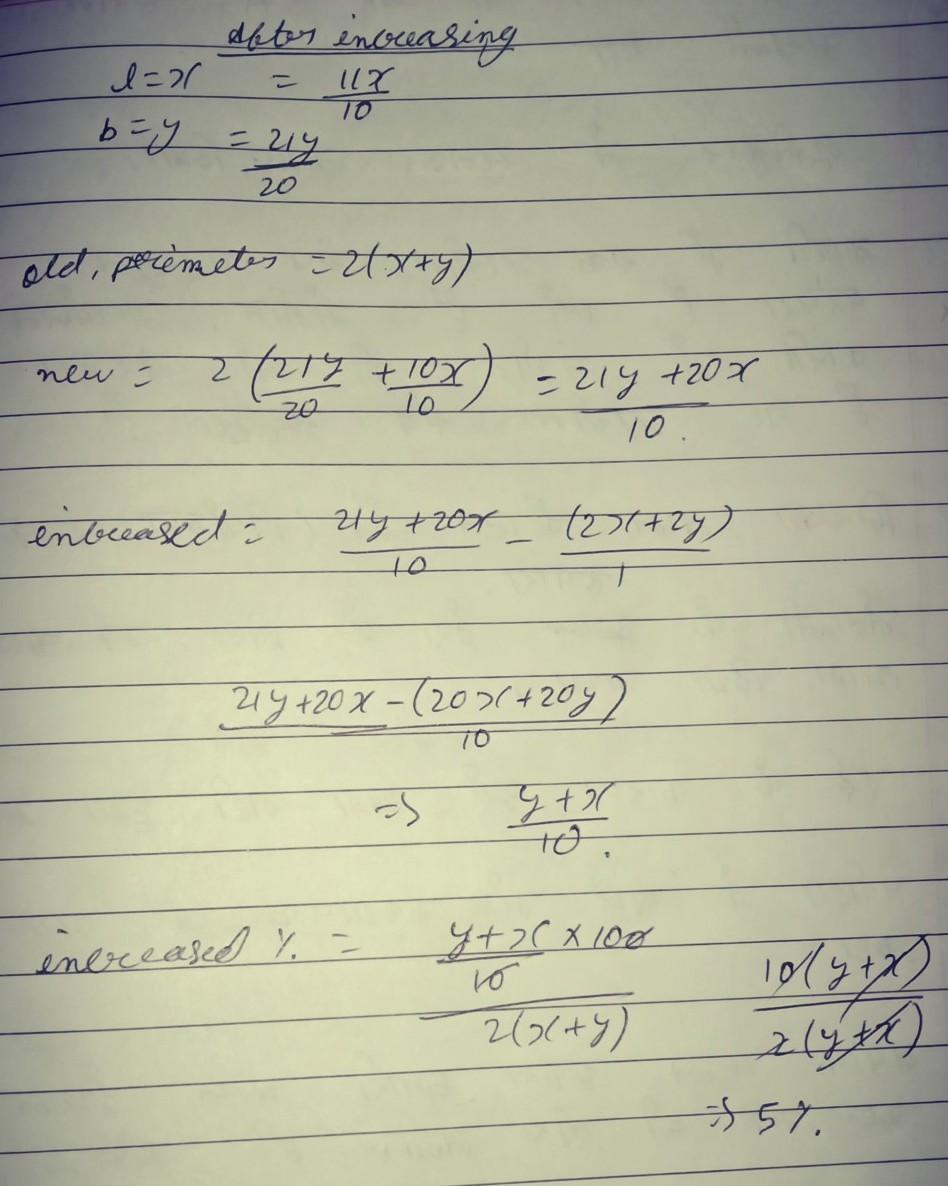 After increasing
l=x = 11x/10
b=y = 21y/20
old, perimeter = 2(x+y)
new = 2(21y/20 + 10x/10) = 21y+20x/10.
increased = 21y+20x/10 - (2x+2y)/1
21y+20x-(20x+20y)/10
=> y+x/10.
increased % = y+x/10 x 100/2(x+y) 10(y+x)/2(y+x)
=> 5%.